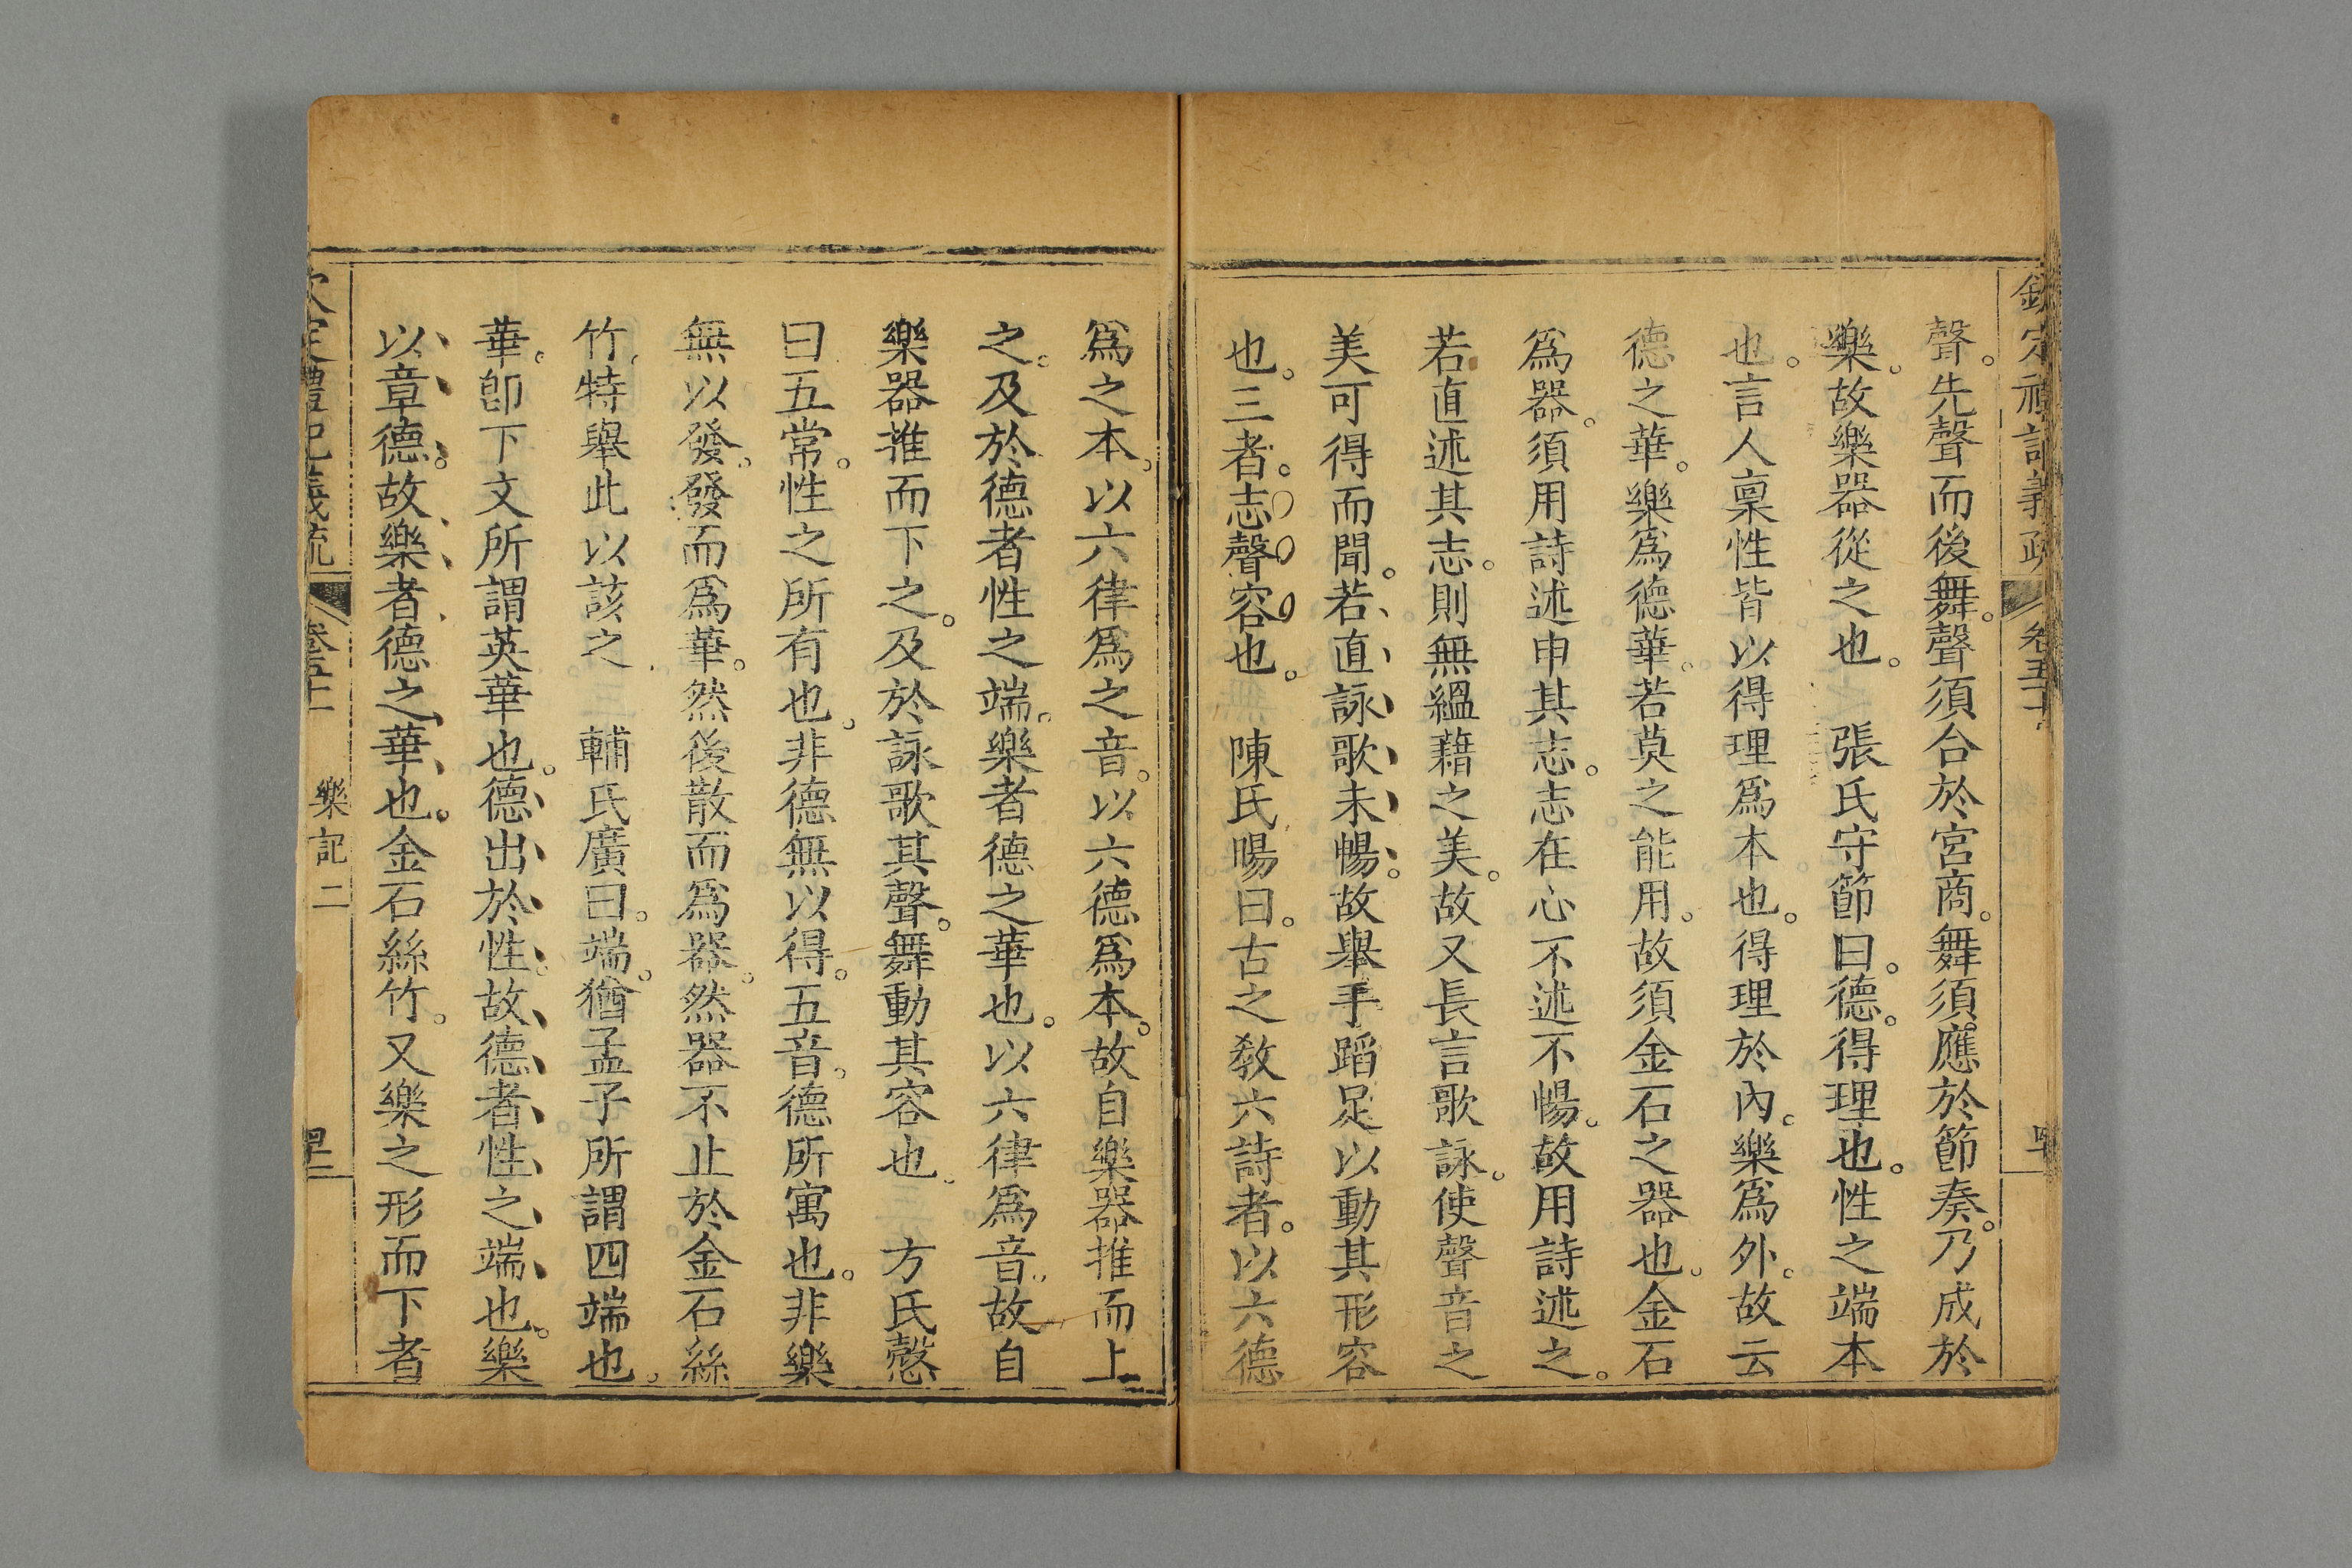 欽定禮記義疏 卷五十 
聲。先聲而後舞。聲須合於宮商。舞須應於節奏。乃成於
樂。故樂器從之也。 張氏守節曰。德。得理也。性之端本
也。言人稟性皆以得理爲本也。得理於內。樂爲外。故云
德之華。樂爲德華。若莫之能用。故須金石之器也。金石
爲器。須用詩述申其志。志在心不述不暢。故用詩述之。
若直述其志。則無縕藉之美。故又長言歌詠。使聲音之
美可得而聞。若直詠歌未暢。故舉手蹈足以動其形容
也。三者。志聲容也。 陳氏暘曰。古之敎六詩者。以六德
爲之本。以六律爲之音。以六德爲本。故自樂器推而上
之。及於德者性之端。樂者德之華也。以六律爲音。故自
樂器推而下之。及於詠歌其聲。舞動其容也。 方氏慤
曰五常。性之所有也。非德無以得。五音。德所寓也。非樂
無以發。發而爲華。然後散而爲器。然器不止於金石絲
竹。特舉此以該之 輔氏廣曰。端。猶孟子所謂四端也。
華。卽下文所謂英華也。德出於性。故德者性之端也。樂
以章德。故樂者德之華也。金石絲竹。又樂之形而下者
定禮記義疏 卷五十 樂記二